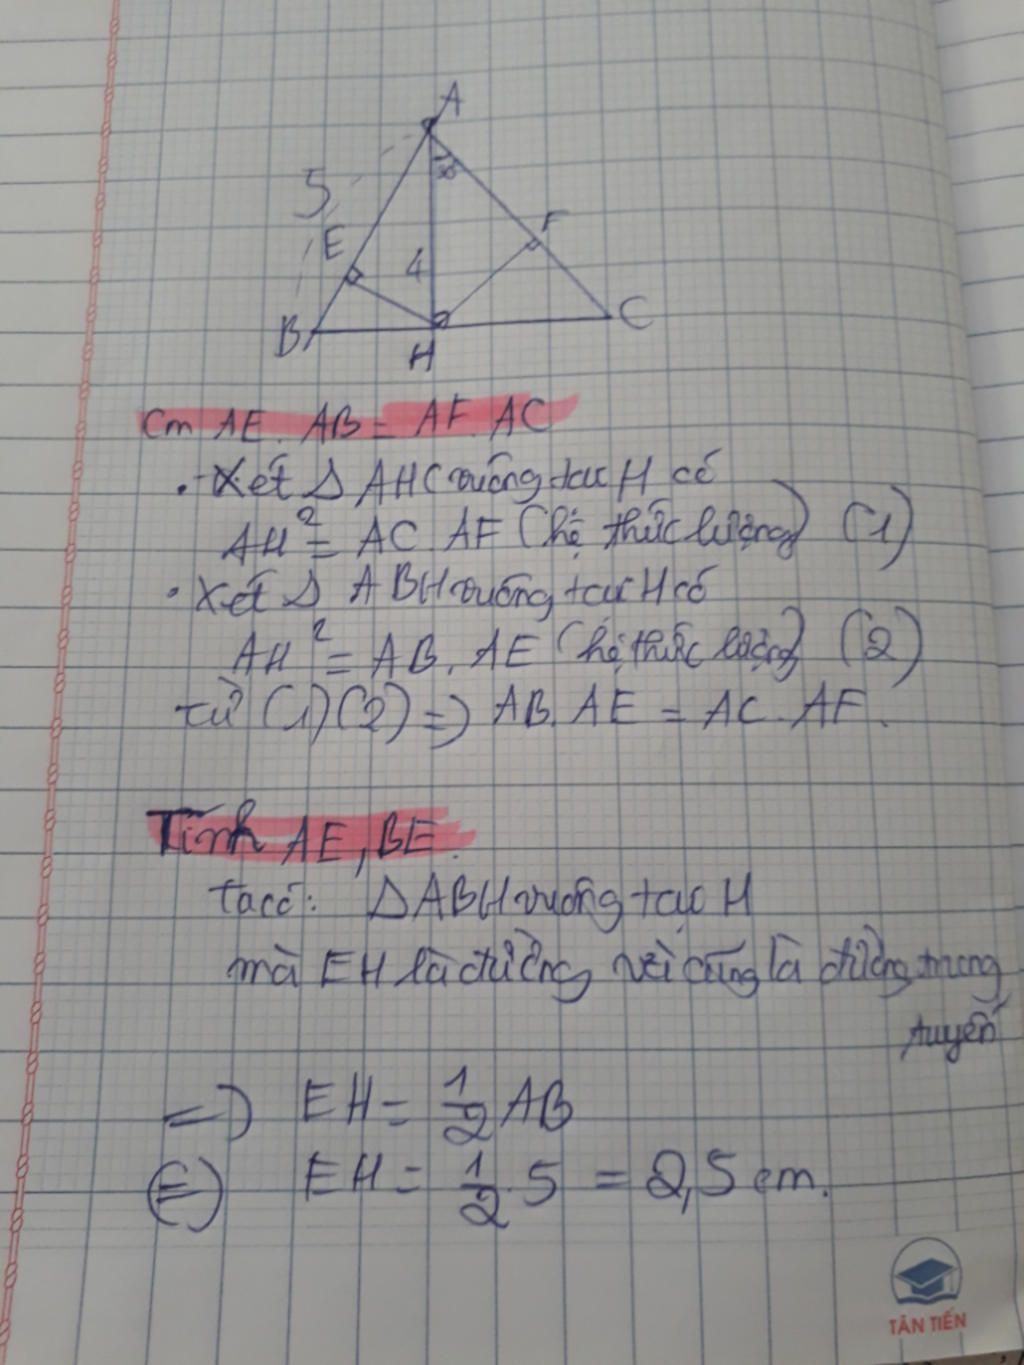 A
5
30
E
F
4
B
H
C
Cm AE. AB = AF. AC
. Xét Δ AHC vuông tại H có
AH² = AC. AF (hệ thức lượng) (1)
. Xét Δ ABH vuông tại H có
AH² = AB. AE (hệ thức lượng) (2)
từ (1) (2) => AB. AE = AC. AF.
Tính AE, BE.
ta có: Δ ABH vuông tại H
mà EH là đường và cũng là đường trung
tuyến
=> EH = 1/2 AB
(=) EH = 1/2 . 5 = 2,5 cm.
TÂN TIẾN